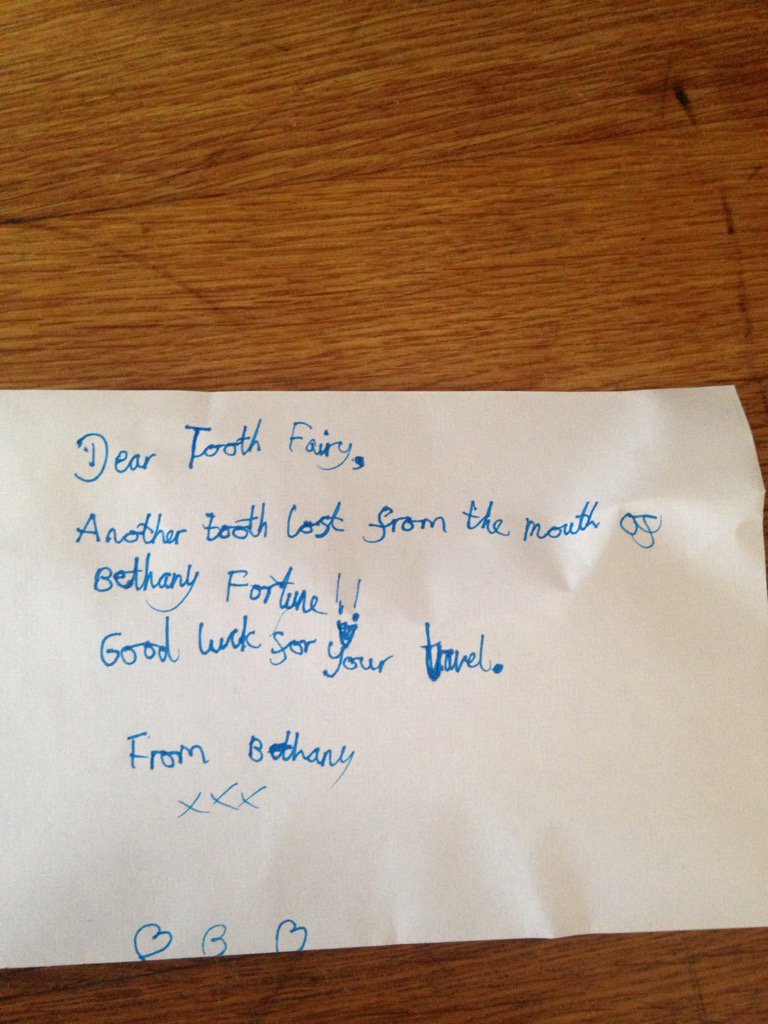 Dear Tooth Fairy,
Another tooth lost from the mouth of
Bethany Fortune!!
Good luck for your travel.
From Bethany
xxx